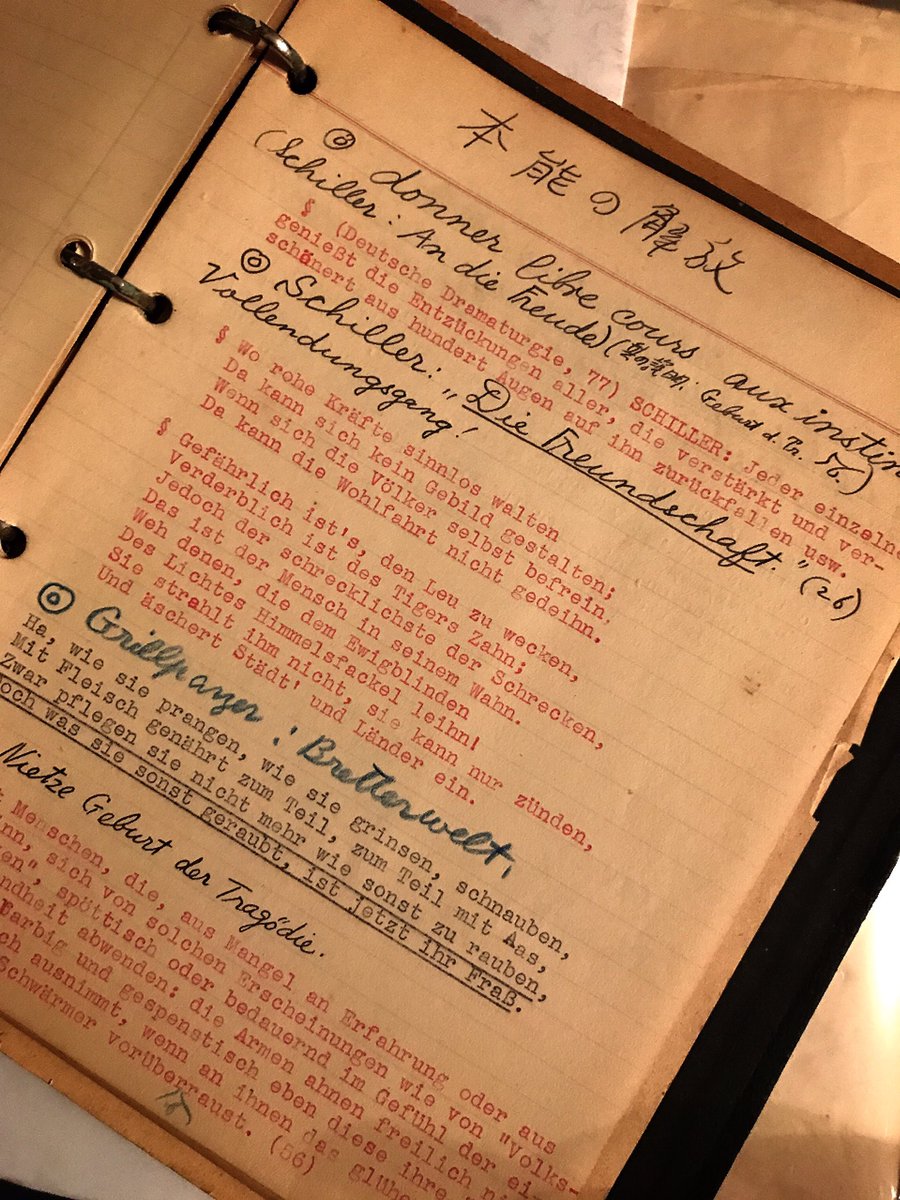 本能の解放
◎ donner libre cours aux instin
(Schiller: An die Freude) ( Geburt d. Tr. 56.)
§ (Deutsche Dramaturgie, 77) SCHILLER: Jeder einzelne
genießt die Entzückungen aller, die verstärkt und ver-
schänert aus hundert Augen auf ihn zurückfallen usw.
◎ Schiller: "Die Freundschaft." (26)
Vollendungsgang!
§ Wo rohe Kräfte sinnlos walten
Da kann sich kein Gebild gestalten;
Wenn sich die Völker selbst befrein,
Da kann die Wohlfahrt nicht gedeihn.
§ Gefährlich ist's, den Leu zu wecken,
Verderblich ist des Tigers Zahn;
Jedoch der schrecklichste der Schrecken,
Das ist der Mensch in seinem Wahn.
Weh denen, die dem Ewigblinden
Des Lichtes Himmelsfackel leihn!
Sie strahlt ihm nicht, sie kann nur zünden,
Und äschert Städt' und Länder ein.
◎ Grillparzer: Bretterwelt,
Ha, wie sie prangen, wie sie grinsen, schnauben,
Mit Fleisch genährt zum Teil, zum Teil mit Aas,
Zwar pflegen sie nicht mehr wie sonst zu rauben,
och was sie sonst geraubt, ist jetzt ihr Fraß.
Nietze Geburt der Tragödie.
t Menschen, die, aus Mangel an Erfahrung oder aus
inn, sich von solchen Erscheinungen wie von "Volks-
en", spöttisch oder bedauernd im Gefühl der ei
ndheit abwenden: die Armen ahnen freilich ni
farbig und gespenstisch eben diese ihre "
ch ausnimmt, wenn an ihnen das glühe
Schwärmer vorüberraust. (56)